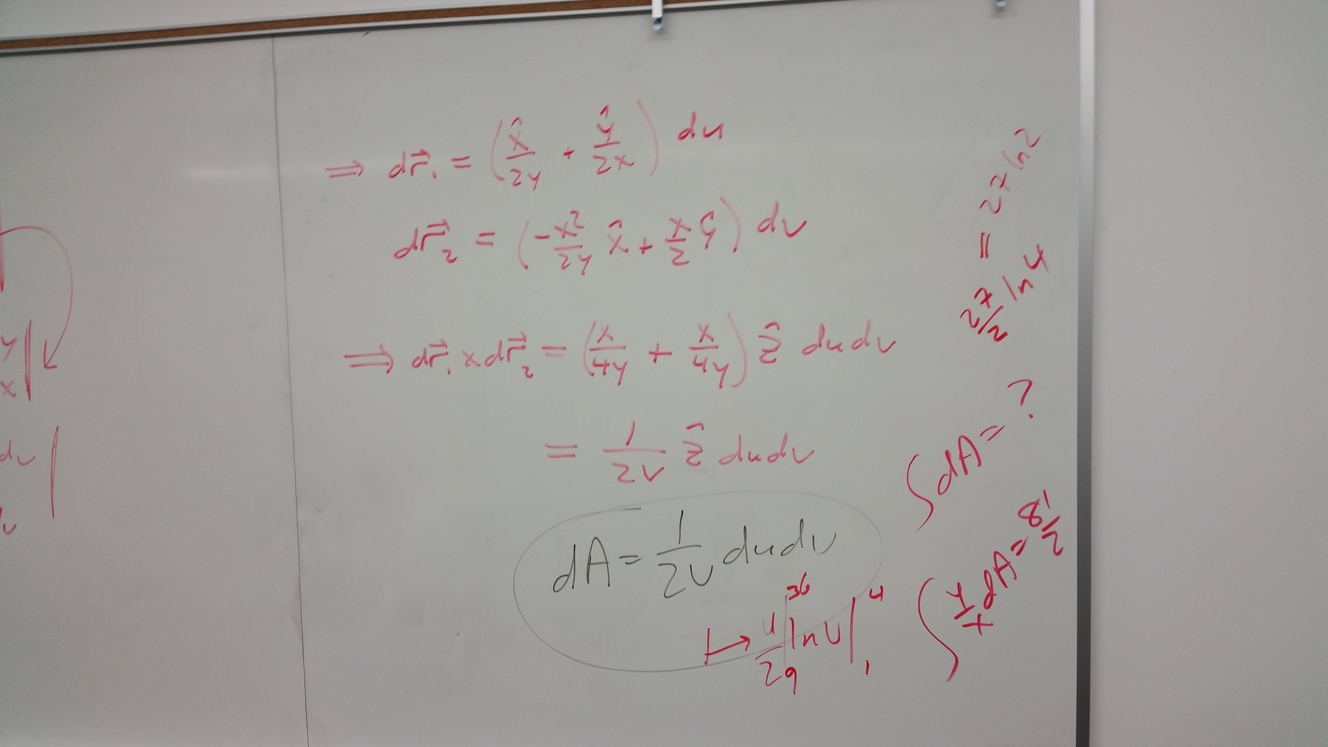 ⟹ dr⃗₁ = (x̂/2y + ŷ/2x) du
dr⃗₂ = (-x²/2y x̂ + x/2 ŷ) dv
⟹ dr⃗₁ × dr⃗₂ = (x/4y + x/4y) ẑ du dv
= 1/2v ẑ du dv
dA = 1/2v du dv
↦ u/2 |₉³⁶ ln v |₁⁴
∫ dA = ?
27/2 ln 4 = 27 ln 2
∫ y/x dA = 81/2
y
x
dv